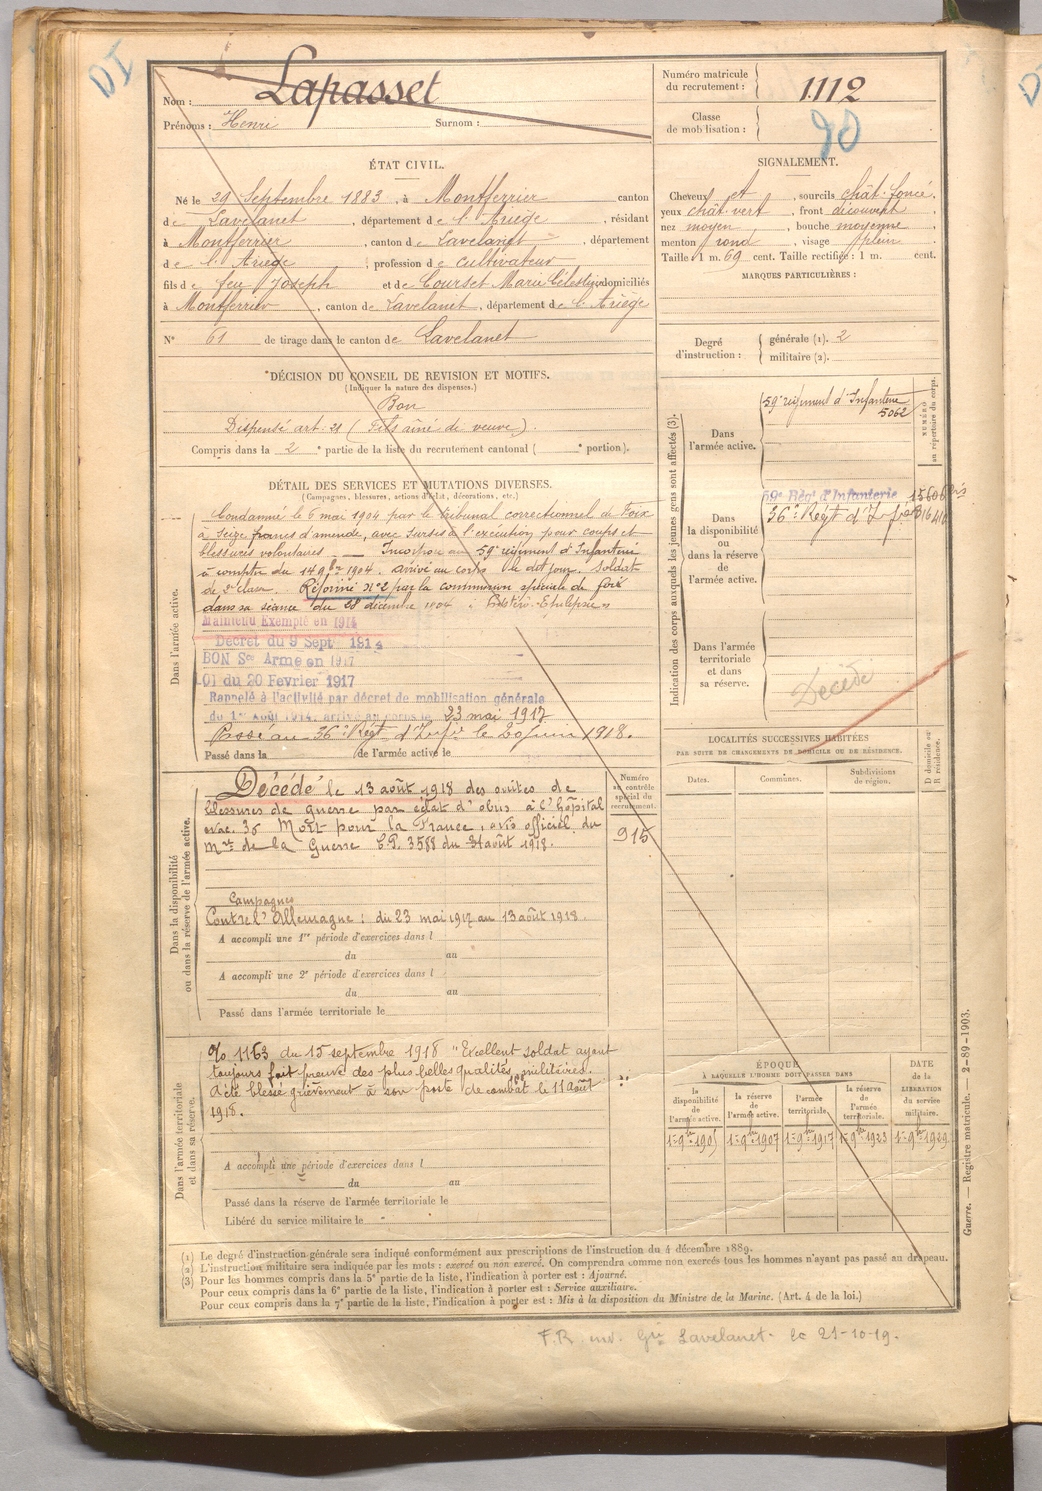 DI
Nom : Lapasset
Prénoms : Henri Surnom :
Numéro matricule du recrutement : 1112
Classe de mobilisation : 90
ÉTAT CIVIL.
Né le 29 Septembre 1883, à Montferrier canton
de Lavelanet, département de l'Ariège, résidant
à Montferrier, canton de Lavelanet, département
de l'Ariège, profession de cultivateur
fils de feu Joseph et de Courset Marie Célestine domiciliés
à Montferrier, canton de Lavelanet, département de l'Ariège
N° 61 de tirage dans le canton de Lavelanet
SIGNALEMENT.
Cheveux et, sourcils chât. foncé,
yeux chât. vert, front découvert,
nez moyen, bouche moyenne,
menton rond, visage plein.
Taille 1 m. 69 cent. Taille rectifiée : 1 m. cent.
MARQUES PARTICULIÈRES :
Degré d'instruction : générale (1). 2
militaire (2).
DÉCISION DU CONSEIL DE REVISION ET MOTIFS.
(Indiquer la nature des dispenses.)
Bon
Dispensé art. 21 (Fils ainé de veuve).
Compris dans la 2e partie de la liste du recrutement cantonal ( e portion).
DÉTAIL DES SERVICES ET MUTATIONS DIVERSES.
(Campagnes, blessures, actions d'éclat, décorations, etc.)
Dans l'armée active.
Condamné le 6 mai 1904 par le tribunal correctionnel de Foix
à Seize francs d'amende, avec sursis à l'exécution, pour coups et
blessures volontaires — Incorporé au 59e régiment d'Infanterie
à compter du 14 9bre 1904. arrivé au corps le dit jour. Soldat
de 2e classe. Réformé n°2 par la commission spéciale de foix
dans sa séance du 28 décembre 1904
Maintenu Exempté en 1914
Décret du 9 Sept 1914
BON Sce Armé en 1917
01 du 20 Février 1917
Rappelé à l'activité par décret de mobilisation générale
du 1er Août 1914, arrivé au corps le 23 mai 1917
Passé au 36e Régt d'Infie le 20 juin 1918.
Passé dans la de l'armée active le
Indication des corps auxquels les jeunes gens sont affectés (3).
NUMÉRO au répertoire du corps.
Dans l'armée active. 59e régiment d'Infanterie 5062
Dans la disponibilité ou dans la réserve de l'armée active.
59e Régt d'Infanterie 15606 bis
36e Régt d'Infie
Dans l'armée territoriale et dans sa réserve.
Décédé
LOCALITÉS SUCCESSIVES HABITÉES
PAR SUITE DE CHANGEMENTS DE DOMICILE OU DE RÉSIDENCE.
Dates. Communes. Subdivisions de région. D domicile ou R résidence.
Dans la disponibilité ou dans la réserve de l'armée active.
Numéro au contrôle spécial du recrutement.
915
Décédé le 13 août 1918 des suites de
blessures de guerre par éclat d'obus à l'hôpital
évac. 36 Mort pour la France, avis officiel du
Mre de la Guerre 3588 du 31 août 1918.
Campagnes
Contre l'Allemagne : du 23 mai 1917 au 13 août 1918.
A accompli une 1re période d'exercices dans l
du au
A accompli une 2e période d'exercices dans l
du au
Passé dans l'armée territoriale le
Dans l'armée territoriale et dans sa réserve.
1163 du 15 septembre 1918 "Excellent soldat ayant
toujours fait preuve des plus belles qualités militaires.
A été blessé grièvement à son poste de combat le 11 août
1918.
A accompli une période d'exercices dans l
du au
Passé dans la réserve de l'armée territoriale le
Libéré du service militaire le
ÉPOQUE
À LAQUELLE L'HOMME DOIT PASSER DANS
la disponibilité de l'armée active. la réserve de l'armée active. l'armée territoriale. la réserve de l'armée territoriale. DATE de la LIBÉRATION du service militaire.
1er 9bre 1905 1er 9bre 1907 1er 9bre 1917 1er 9bre 1923 1er 9bre 1929
Guerre. — Registre matricule. — 2-89-1903.
(1) Le degré d'instruction générale sera indiqué conformément aux prescriptions de l'instruction du 4 décembre 1889.
(2) L'instruction militaire sera indiquée par les mots : exercé ou non exercé. On comprendra comme non exercés tous les hommes n'ayant pas passé au drapeau.
(3) Pour les hommes compris dans la 5e partie de la liste, l'indication à porter est : Ajourné.
Pour ceux compris dans la 6e partie de la liste, l'indication à porter est : Service auxiliaire.
Pour ceux compris dans la 7e partie de la liste, l'indication à porter est : Mis à la disposition du Ministre de la Marine. (Art. 4 de la loi.)
F.R. env. Gie Lavelanet. le 21-10-19.